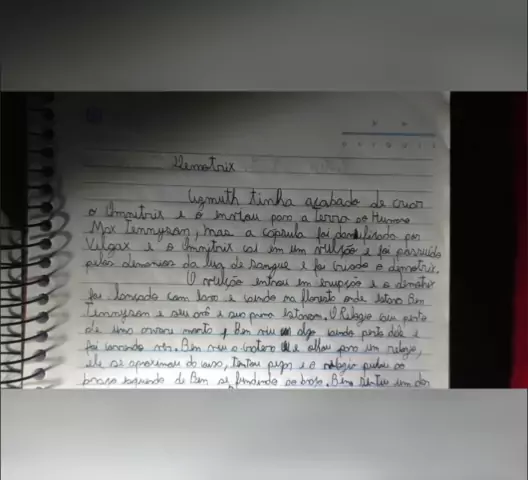 Demotrix
Azmuth tinha acabado de criar
o Omnitrix e o enviou para a terra ao Humano
Max Tennyson, mas a capsula foi danificada por
Vilgax e o Omnitrix cai em um vulção e foi possuido
pelos demonios da lua de sangue e foi criado o demotrix.
O vulção entrou em erupção e o demotrix
foi lançado com lava e caindo na floresta onde estava Ben
Tennyson e seu avô e sua prima estavam. O Relogio caiu perto
de uma arvore morta, Ben viu algo caindo perto dele e
foi correndo ver. Ben viu a cratera e olhou para um relogio,
ele se aproximou do caso, tentou pegar e o relogio pulou no
braço esquerdo de Ben se fundindo ao braço. Ben sentiu um dor